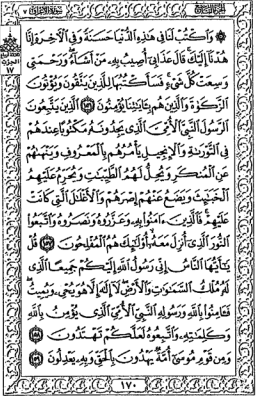 وَٱكْتُبْ لَنَا فِى هَٰذِهِ ٱلدُّنْيَا حَسَنَةً وَفِى ٱلْءَاخِرَةِ إِنَّا
هُدْنَآ إِلَيْكَ قَالَ عَذَابِىٓ أُصِيبُ بِهِۦ مَنْ أَشَآءُ وَرَحْمَتِى
وَسِعَتْ كُلَّ شَىْءٍ فَسَأَكْتُبُهَا لِلَّذِينَ يَتَّقُونَ وَيُؤْتُونَ
ٱلزَّكَوٰةَ وَٱلَّذِينَ هُم بِـَٔايَٰتِنَا يُؤْمِنُونَ ١٥٦ ٱلَّذِينَ يَتَّبِعُونَ
ٱلرَّسُولَ ٱلنَّبِىَّ ٱلْأُمِّىَّ ٱلَّذِى يَجِدُونَهُۥ مَكْتُوبًا عِندَهُمْ
فِى ٱلتَّوْرَىٰةِ وَٱلْإِنجِيلِ يَأْمُرُهُم بِٱلْمَعْرُوفِ وَيَنْهَىٰهُمْ
عَنِ ٱلْمُنكَرِ وَيُحِلُّ لَهُمُ ٱلطَّيِّبَٰتِ وَيُحَرِّمُ عَلَيْهِمُ
ٱلْخَبَٰٓئِثَ وَيَضَعُ عَنْهُمْ إِصْرَهُمْ وَٱلْأَغْلَٰلَ ٱلَّتِى كَانَتْ
عَلَيْهِمْ فَٱلَّذِينَ ءَامَنُوا۟ بِهِۦ وَعَزَّرُوهُ وَنَصَرُوهُ وَٱتَّبَعُوا۟
ٱلنُّورَ ٱلَّذِىٓ أُنزِلَ مَعَهُۥٓ أُو۟لَٰٓئِكَ هُمُ ٱلْمُفْلِحُونَ ١٥٧ قُلْ
يَٰٓأَيُّهَا ٱلنَّاسُ إِنِّى رَسُولُ ٱللَّهِ إِلَيْكُمْ جَمِيعًا ٱلَّذِى
لَهُۥ مُلْكُ ٱلسَّمَٰوَٰتِ وَٱلْأَرْضِ لَآ إِلَٰهَ إِلَّا هُوَ يُحْىِۦ وَيُمِيتُ
فَـَٔامِنُوا۟ بِٱللَّهِ وَرَسُولِهِ ٱلنَّبِىِّ ٱلْأُمِّىِّ ٱلَّذِى يُؤْمِنُ بِٱللَّهِ
وَكَلِمَٰتِهِۦ وَٱتَّبِعُوهُ لَعَلَّكُمْ تَهْتَدُونَ ١٥٨
وَمِن قَوْمِ مُوسَىٰٓ أُمَّةٌ يَهْدُونَ بِٱلْحَقِّ وَبِهِۦ يَعْدِلُونَ ١٥٩
١٧٠